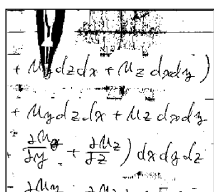 + u_y dzdx + u_z dxdy )
+ u_y dzdx + u_z dxdy
∂u_y/∂y + ∂u_z/∂z ) dxdydz